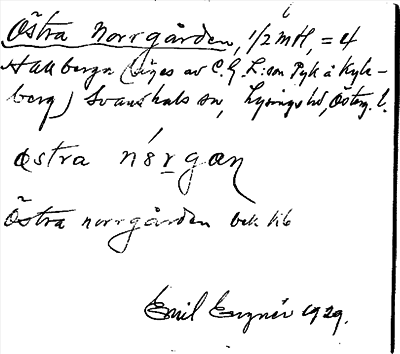 Östra Norrgården, 1/2 mtl, = 4
Hallberga (äges av C. G. L:son Pyk å Kyle-
berg) Svanshals sn, Lysings hd, Österg. l.
östra nǿrgaɲ
Östra norrgården bek kb
Emil 1929.